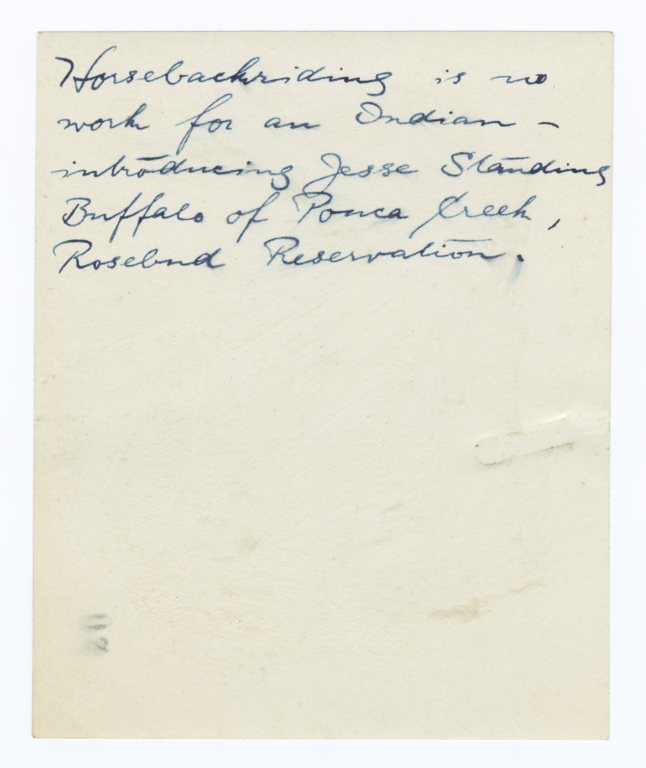 Horsebackriding is no
work for an Indian –
introducing Jesse Standing
Buffalo of Ponca Creek,
Rosebud Reservation.